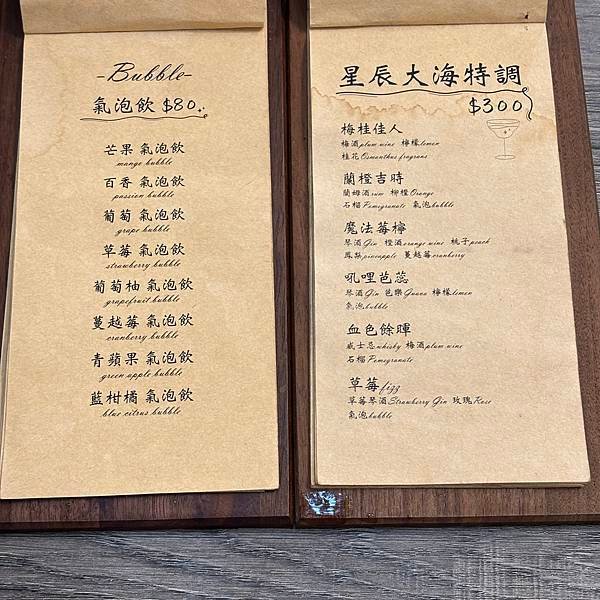 -Bubble-
氣泡飲 $80.
芒果 氣泡飲
mango bubble
百香 氣泡飲
passion bubble
葡萄 氣泡飲
grape bubble
草莓 氣泡飲
strawberry bubble
葡萄柚 氣泡飲
grapefruit bubble
蔓越莓 氣泡飲
cranberry bubble
青蘋果 氣泡飲
green apple bubble
藍柑橘 氣泡飲
blue citrus bubble
星辰大海特調
$300
梅桂佳人
梅酒plum wine 檸檬lemon
桂花Osmanthus fragrans
蘭橙吉時
蘭姆酒rum 柳橙Orange
石榴Pomegranate 氣泡bubble
魔法莓檸
琴酒Gin 橙酒orange wine 桃子peach
鳳梨pineapple 蔓越莓cranberry
吼哩芭蕊
琴酒Gin 芭樂Guava 檸檬lemon
氣泡bubble
血色餘暉
威士忌whisky 梅酒plum wine
石榴Pomegranate
草莓fizz
草莓琴酒Strawberry Gin 玫瑰Rose
氣泡bubble